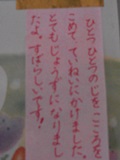 ひとつひとつのじを、こころを
こめて、ていねいにかけました。
とてもじょうずになりまし
たよ。すばらしいです!